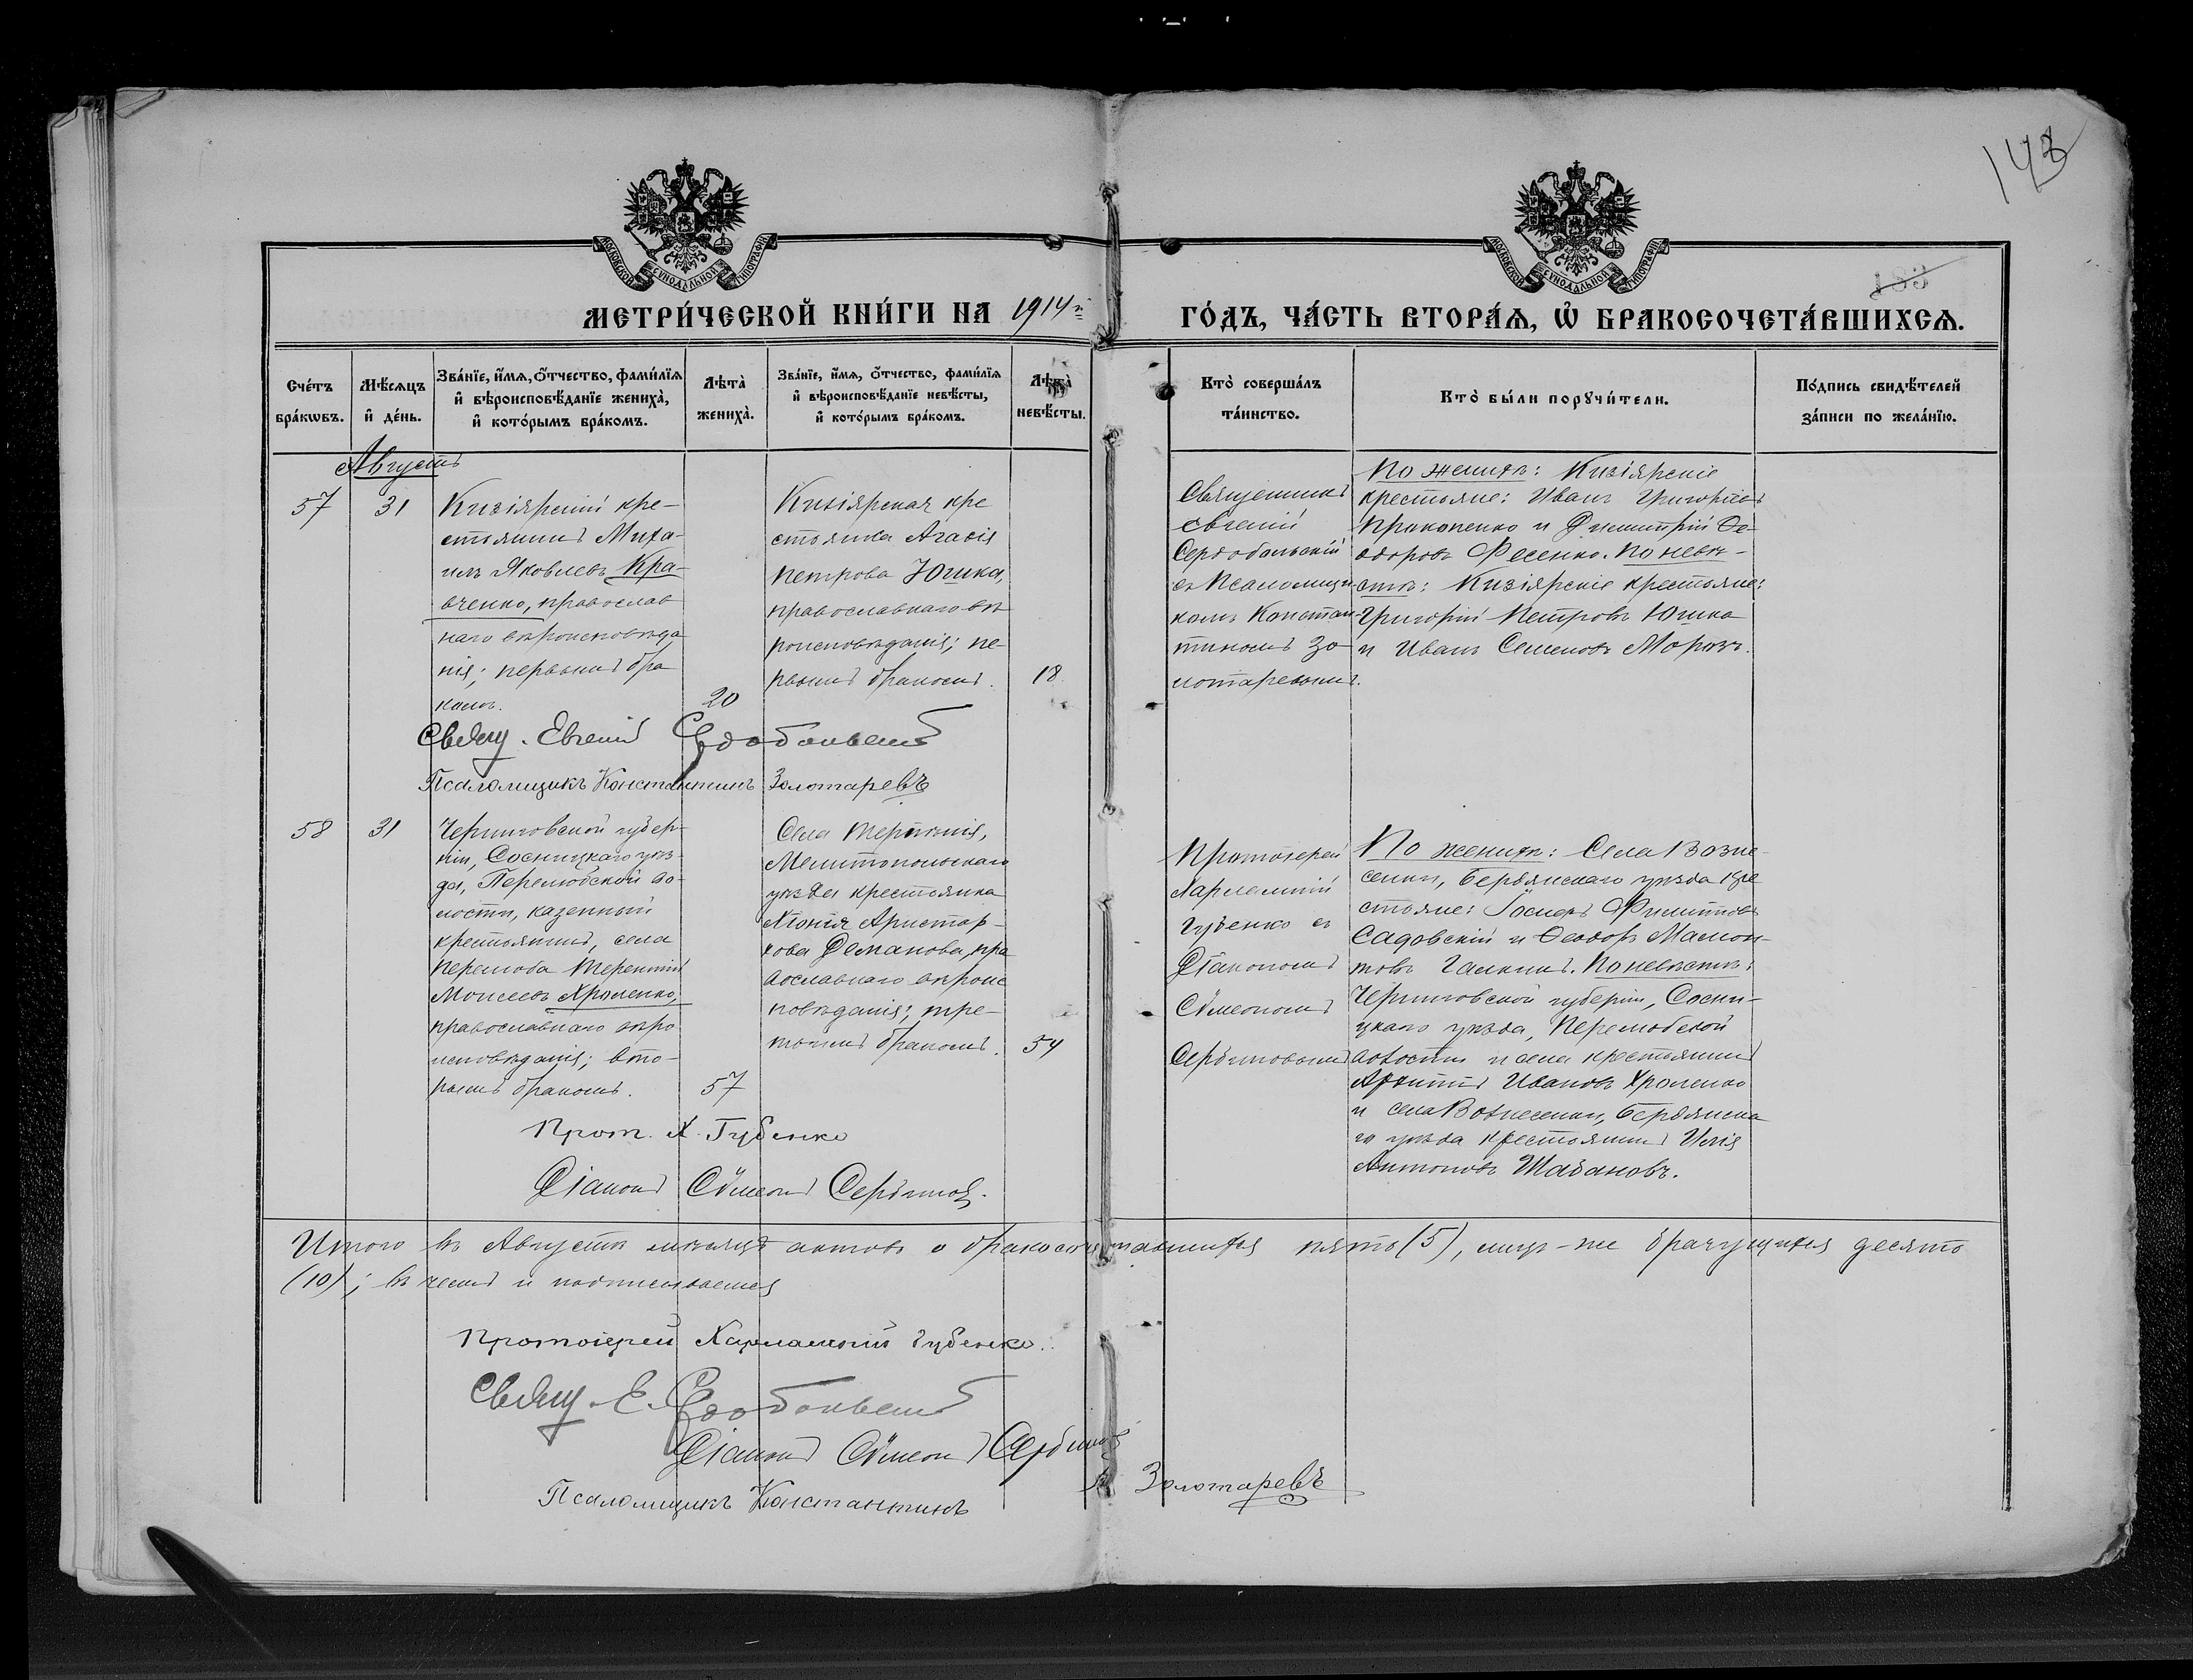 143
МОСКОВСКОЙ СУНОДАЛЬНОЙ ТИПОГРАФІИ
МОСКОВСКОЙ СУНОДАЛЬНОЙ ТИПОГРАФІИ
МЕТРИ́ЧЕСКОЙ КНИ́ГИ НА 1914й ГО́ДЪ, ЧА́СТЬ ВТОРА́Ѧ, Ѡ҆ БРАКОСОЧЕТА́ВШИХСѦ.
Сче́тъ
бра́кѡвъ.
Мѣ́сѧцъ
и҆ де́нь.
Зва́нїе, и҆́мѧ, ѻ҆́тчество, фами́лїѧ
и҆ вѣроисповѣ́данїе жениха̀,
и҆ кото́рымъ бра́комъ.
Лѣта̀
жениха̀.
Зва́нїе, и҆́мѧ, ѻ҆́тчество, фами́лїѧ
и҆ вѣроисповѣ́данїе невѣ́сты,
и҆ кото́рымъ бра́комъ.
Лѣта̀
невѣ́сты.
Кто̀ соверша́лъ
та́инство.
Кто̀ бы́ли порꙋчи́тели.
По́дпись свидѣ́телей
за́писи по жела́нїю.
Августъ
57
31
Кизіярскій кре-
стьянинъ Миха-
илъ Яковлевъ Кра-
вченко, православ
наго вѣроисповѣда
нія; первымъ бра
комъ.
20
Кизіярская кре
стьянка Агаѳія
Петрова Юшка,
православнаго вѣ
роисповѣданія; пе-
рвымъ бракомъ.
18
Священникъ
Евгеній
Сердобольскій
съ Псаломщи-
комъ Констан-
тиномъ Зо-
лотаревымъ.
По женихѣ: Кизіярскіе
крестьяне: Иванъ Григоріевъ
Прокопенко и Димитрій Ѳе-
одоровъ Фесенко. По невѣ-
стѣ: Кизіярскіе крестьяне:
Григорій Петровъ Юшка
и Иванъ Семеновъ Морозъ.
Свящ. Евгеній Сердобольскій
Псаломщикъ Константинъ Золотаревъ
58
31
Черниговской губер-
ніи, Сосницкаго уѣз-
да, Перелюбской во-
лости, казенный
крестьянинъ, села
Перелюба Терентій
Моисеевъ Хроленко,
православнаго вѣро
исповѣданія; вто-
рымъ бракомъ.
57
Села Терпѣнія,
Мелитопольскаго
уѣзда крестьянка
Аристар-
хова Деманова, пра
вославнаго вѣроис
повѣданія; тре-
тьимъ бракомъ.
54
Протоіерей
Харлампій
Губенко съ
Діакономъ
Сѵмеономъ
Сербиновымъ
По женихѣ: Села Возне-
сенки, Бердянскаго уѣзда кре
стьяне: Іосифъ Филиповъ
Садовскій и Ѳеодоръ Мамон-
товъ Галкинъ. По невѣстѣ:
Черниговской губерніи, Сосни-
цкаго уѣзда, Перелюбской
волости и села крестьянинъ
Архипъ Ивановъ Хроленко
и села Вознесенки, Бердянска
го уѣзда крестьянинъ Илія
Антоновъ Шабановъ.
Прот. Х. Губенко
Діаконъ Сѵмеонъ Сербиновъ.
Итого въ Августѣ мѣсяцѣ актовъ о бракосочетавшихся пять (5), лицъ-же брачущихся десять
(10); въ чемъ и подписываемся
Протоіерей Харлампій Губенко.
Свящ. Е. Сердобольскій
Діаконъ Сѵмеонъ Сербиновъ
Псаломщикъ Константинъ Золотаревъ